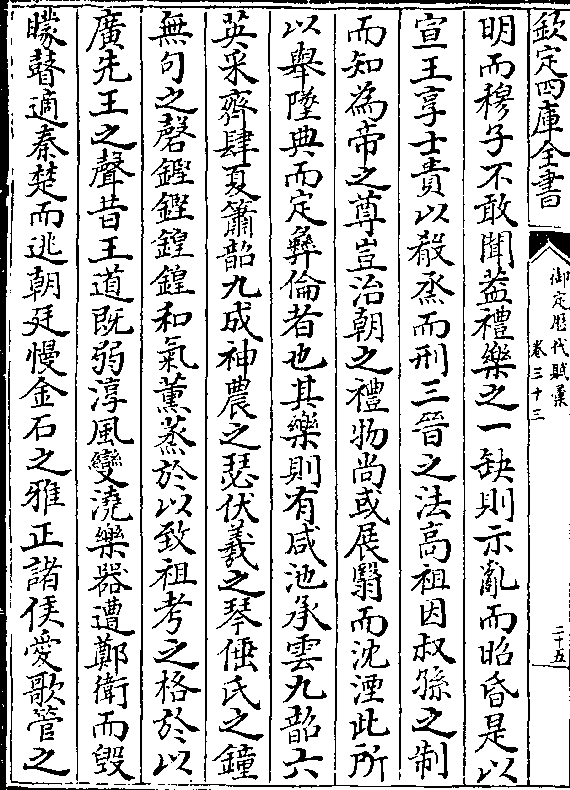 欽定四庫全書
御定歷代賦彙
卷三十三
二十五
明而穆子不敢聞蓋禮樂之一缺則示亂而昭昏是以
宣王享士貴以殽烝而刑三晉之法高祖因叔孫之制
而知為帝之尊豈治朝之禮物尚或展翳而沈湮此所
以舉墜典而定彞倫者也其樂則有咸池承雲九韶六
英采齊肆夏簫韶九成神農之瑟伏羲之琴倕氏之鐘
無句之磬鏗鏗鍠鍠和氣薰蒸於以致祖考之格於以
廣先王之聲昔王道既弱淳風變澆樂器遭鄭衛而毀
矇瞽適秦楚而逃朝廷慢金石之雅正諸侯愛歌管之